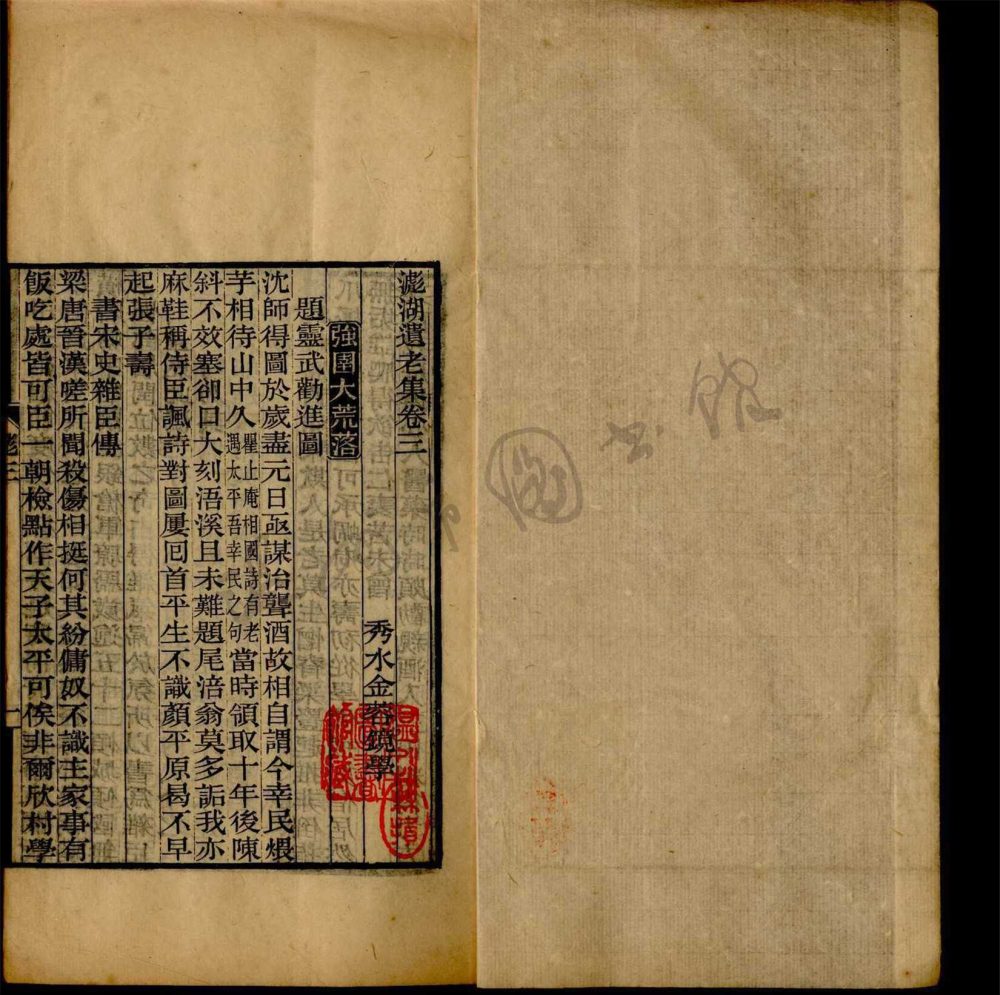 滮湖遺老集卷三
秀水金蓉鏡學
強圉大荒落
題靈武勸進圖
沈師得圖於歲盡元日亟謀治聾酒故相自謂今幸民煨
芋相待山中久瞿止庵相國詩有老遇太平吾幸民之句當時領取十年後陳
斜不效塞卻口大刻浯溪且未難題尾涪翁莫多詬我亦
麻鞋稱侍臣諷詩對圖屢囘首平生不識顏平原曷不早
起張子壽
書宋史雜臣傳
梁唐晉漢嗟所聞殺傷相挺何其紛傭奴不識主家事有
飯吃處皆可臣一朝檢點作天子太平可俟非爾欣村學
卷三
一
圖書館